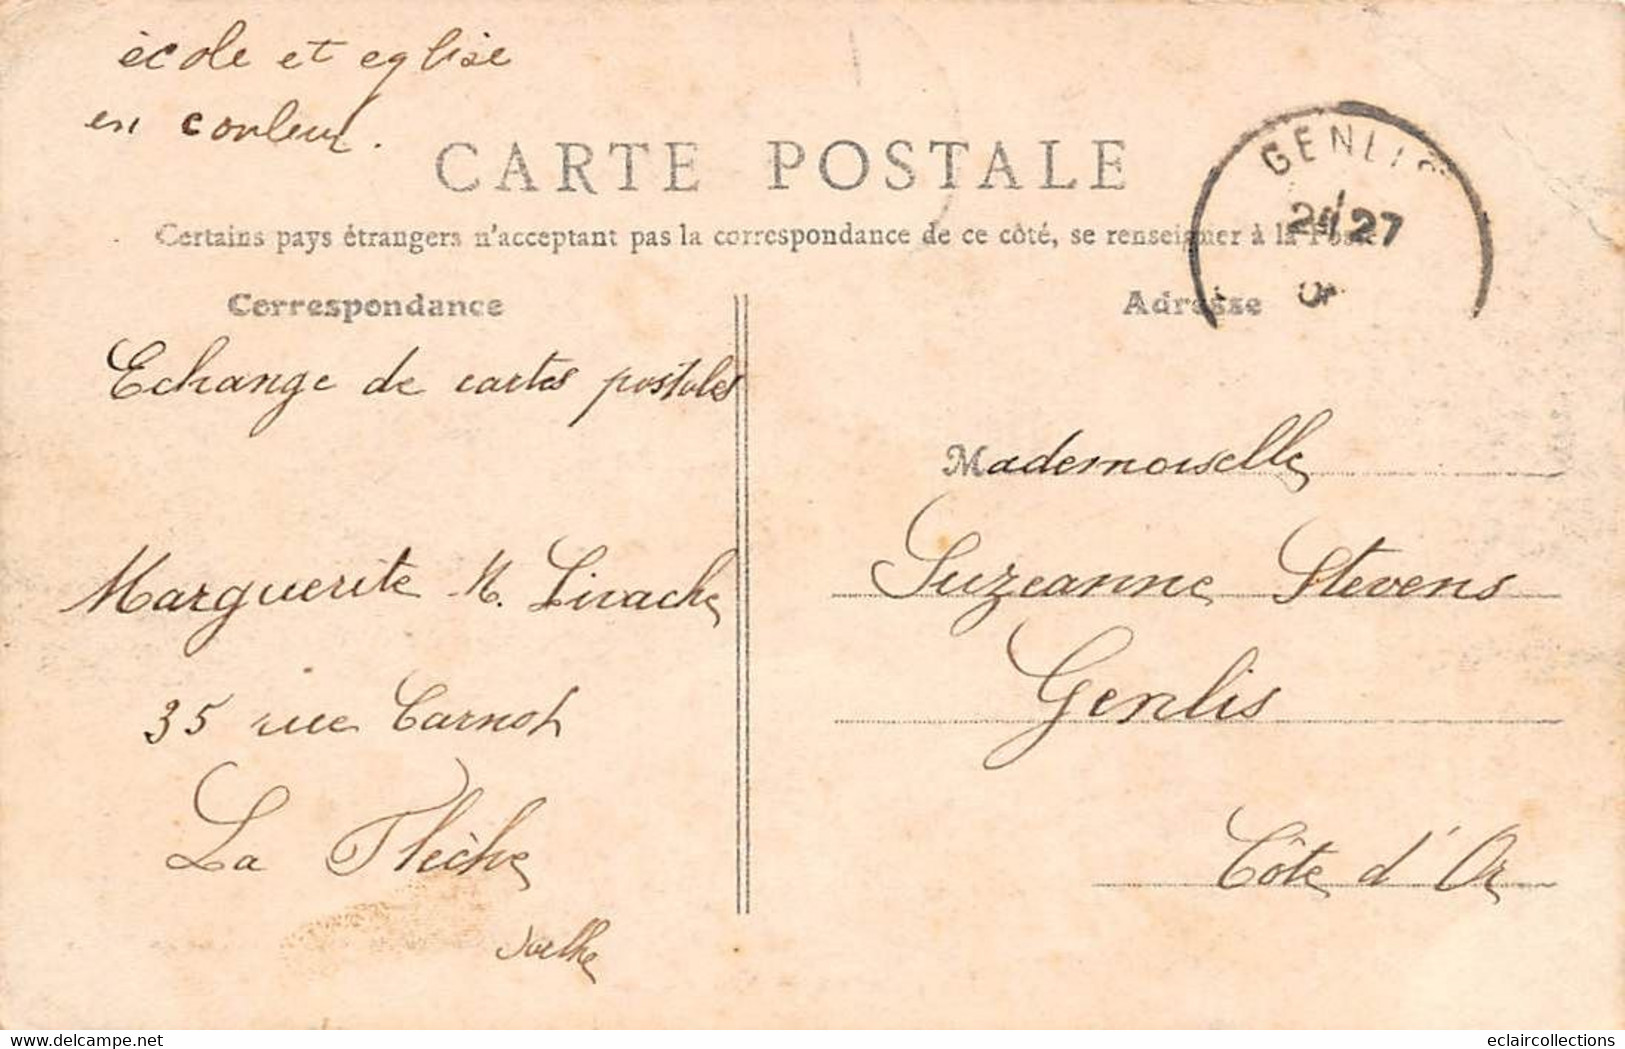 école et eglise
en couleur.
CARTE POSTALE
Certains pays étrangers n'acceptant pas la correspondance de ce côté, se renseigner à la Poste
GENLIS
27
Correspondance
Adresse
Echange de cartes postales
Marguerite M. Livache
35 rue Carnot
La Flèche
Sarthe
Mademoiselle
Suzeanne Stevens
Genlis
Côte d'Or
delcampe.net
eclaircollections